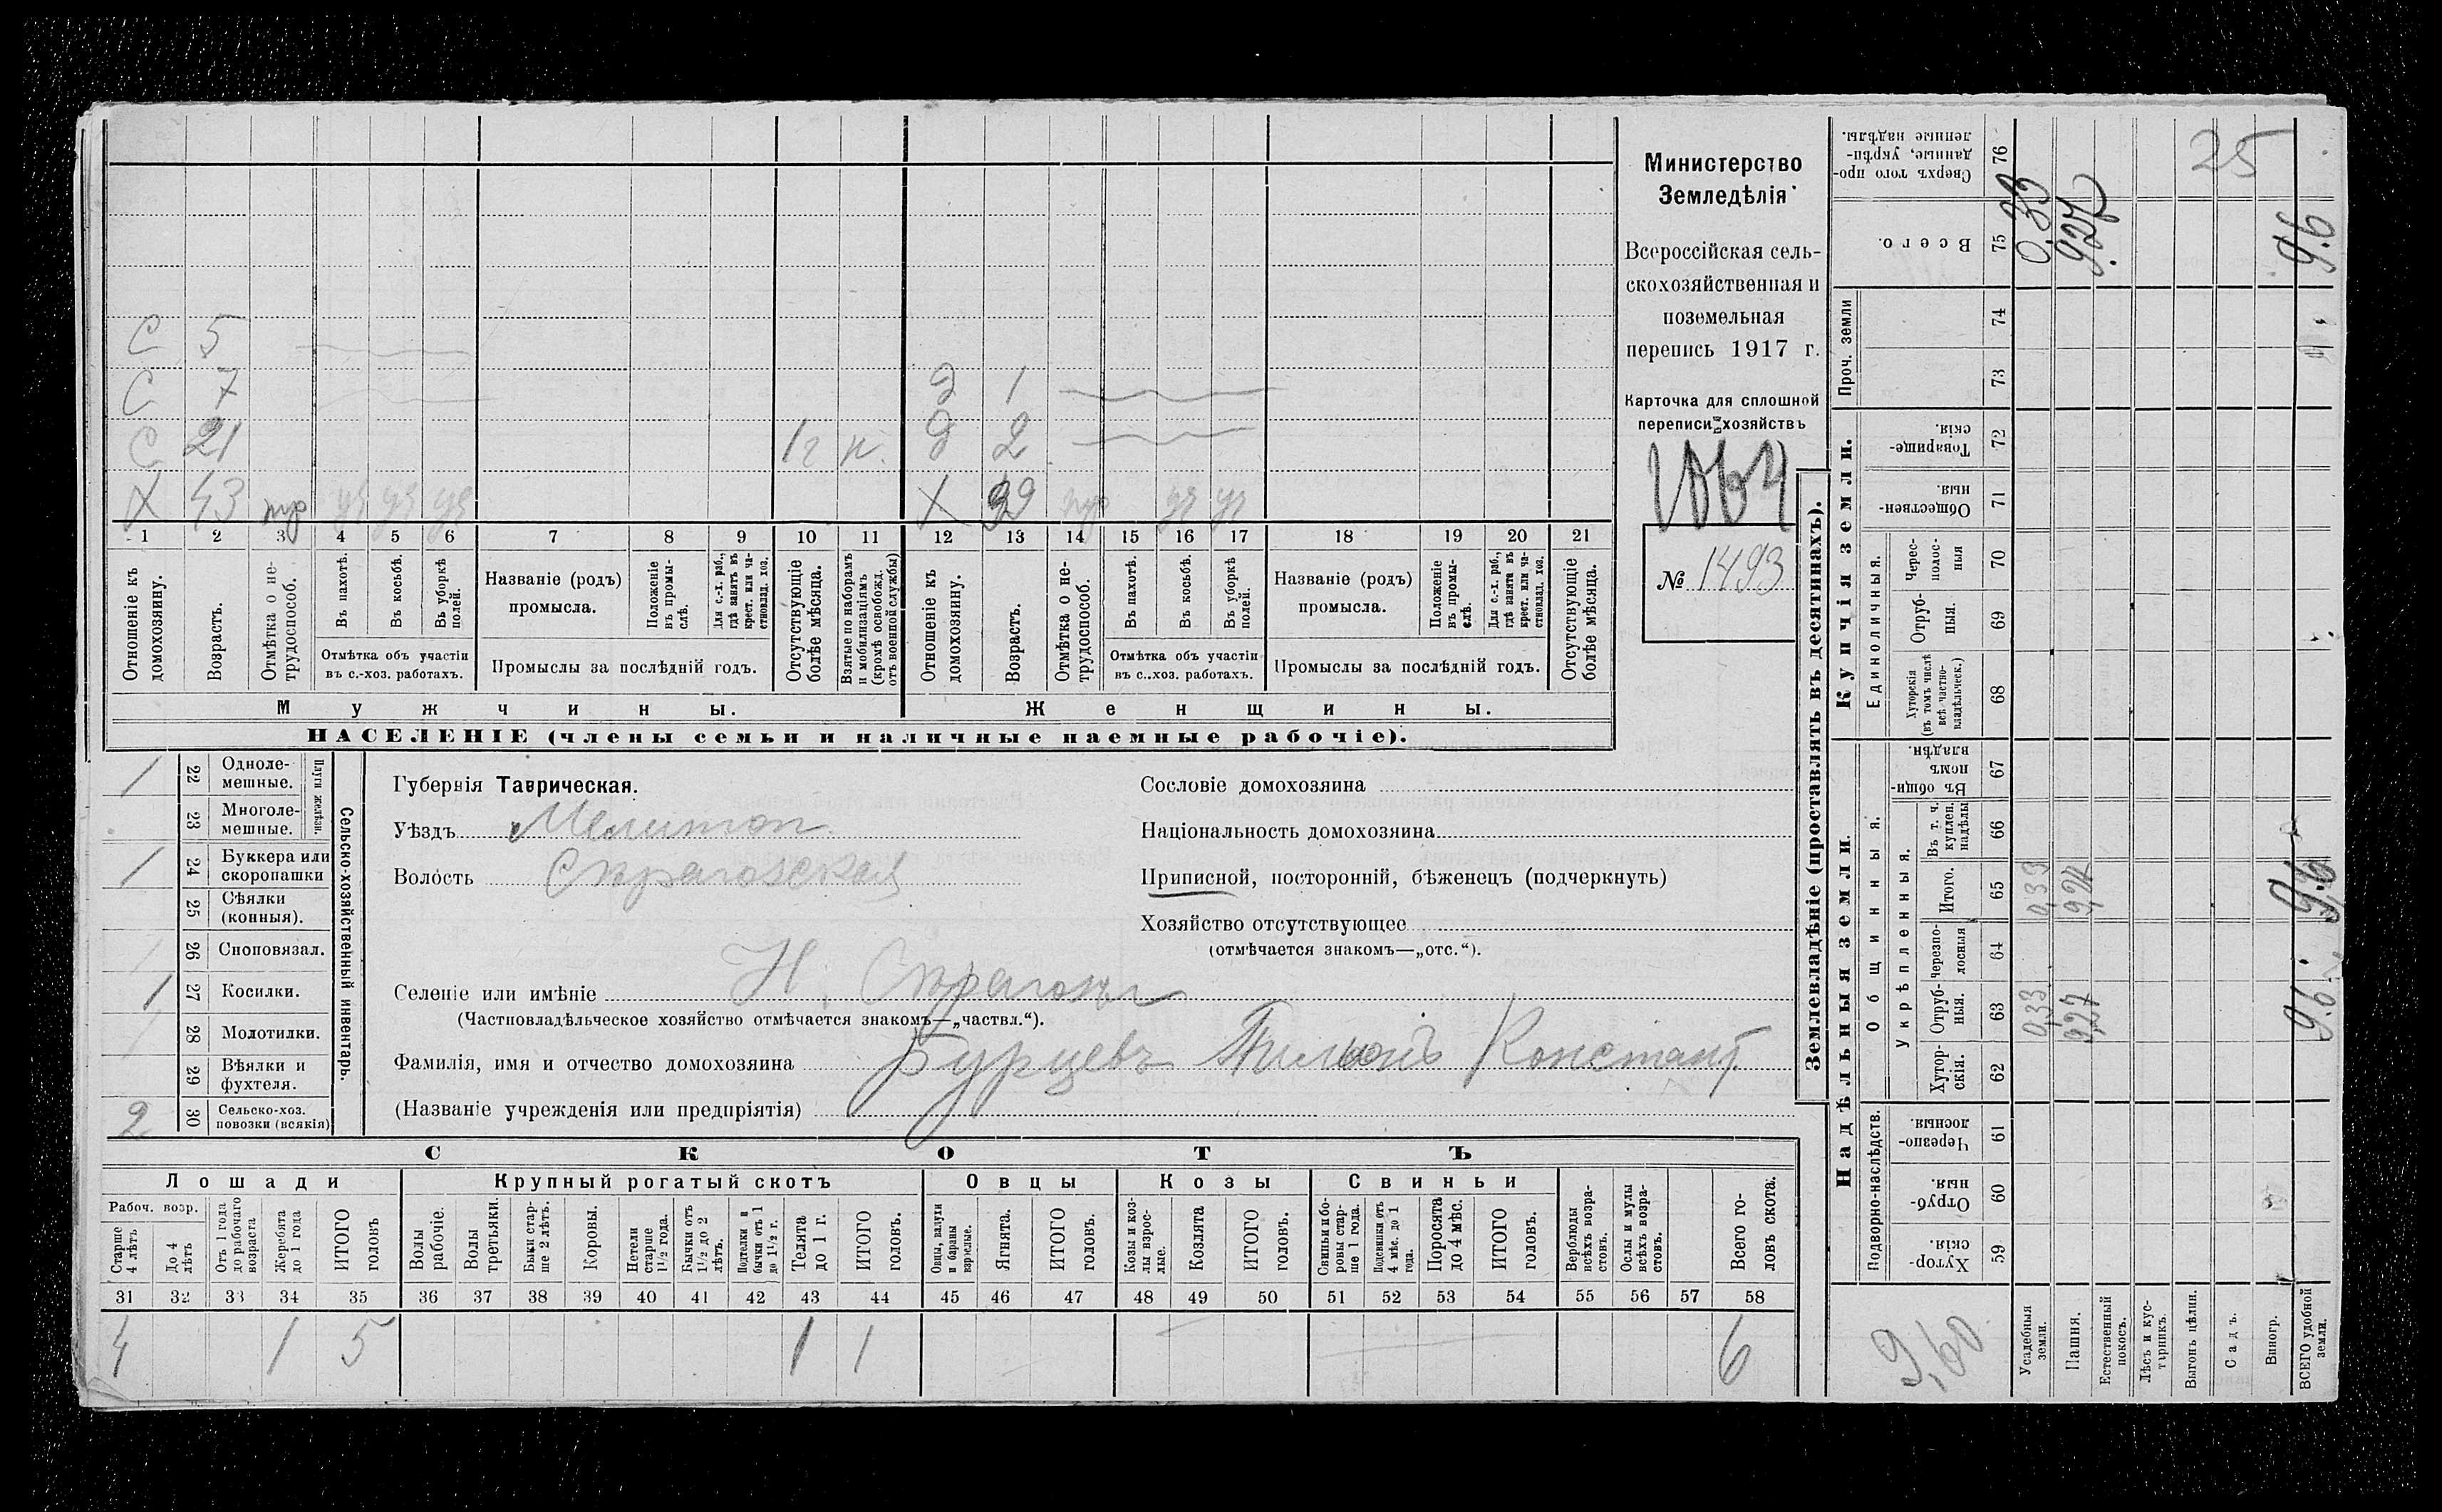 С 5
С 7 д 1
С 21 1г н. д 2
Х 43 тр уч уч уч Х 39 тр уч уч
1 2 3 4 5 6 7 8 9 10 11 12 13 14 15 16 17 18 19 20 21
Отношеніе къ домохозяину.
Возрастъ.
Отмѣтка о не-трудоспособ.
Въ пахотѣ.
Въ косьбѣ.
Въ уборкѣ полей.
Отмѣтка объ участіи
въ с.-хоз. работахъ.
Названіе (родъ)
промысла.
Положеніе въ промы-слѣ.
Для с.-х. раб., гдѣ занятъ въ крест. или ча-стновлад. хоз.
Промыслы за послѣдній годъ.
Отсутствующіе болѣе мѣсяца.
Взятые по наборамъ и мобилизаціямъ (кромѣ освобожд. отъ военной службы)
Отношеніе къ домохозяину.
Возрастъ.
Отмѣтка о не-трудоспособ.
Въ пахотѣ.
Въ косьбѣ.
Въ уборкѣ полей.
Отмѣтка объ участіи
въ с.-хоз. работахъ.
Названіе (родъ)
промысла.
Положеніе въ промы-слѣ.
Для с.-х. раб., гдѣ занята въ крест. или ча-стновлад. хоз.
Промыслы за послѣдній годъ.
Отсутствующіе болѣе мѣсяца.
Мужчины.
Женщины.
НАСЕЛЕНІЕ (члены семьи и наличные наемные рабочіе).
Министерство
Земледѣлія
Всероссійская сель-
скохозяйственная и
поземельная
перепись 1917 г.
Карточка для сплошной
переписи хозяйствъ
№ 1493
Сельско-хозяйственный инвентарь.
Плуги желѣзн.
1 22 Одноле-мешные.
23 Многоле-мешные.
1 24 Буккера или скоропашки
25 Сѣялки (конныя).
26 Сноповязал.
1 27 Косилки.
28 Молотилки.
29 Вѣялки и фухтеля.
2 30 Сельско-хоз. повозки (всякія)
Губернія Таврическая.
Уѣздъ Мелитоп.
Волость Сѣрагозская
Селеніе или имѣніе Н. Сѣрагозы
(Частновладѣльческое хозяйство отмѣчается знакомъ—„частвл.“).
Фамилія, имя и отчество домохозяина Бурцевъ Констант.
(Названіе учрежденія или предпріятія)
Сословіе домохозяина
Національность домохозяина
Приписной, посторонній, бѣженецъ (подчеркнуть)
Хозяйство отсутствующее
(отмѣчается знакомъ—„отс.“).
СКОТЪ
Лошади
Крупный рогатый скотъ
Овцы
Козы
Свиньи
Рабоч. возр.
Старше 4 лѣтъ
До 4 лѣтъ
Отъ 1 года до рабочаго возраста
Жеребята до 1 года
ИТОГО головъ
Волы рабочіе.
Волы третьяки.
Быки стар-ше 2 лѣтъ.
Коровы.
Нетели старше 1½ года.
Бычки отъ 1½ до 2 лѣтъ.
Подтелки и бычки отъ 1 до 1½ г.
Телята до 1 г.
ИТОГО головъ.
Овцы, валухи и бараны взрослые.
Ягнята.
ИТОГО головъ.
Козы и коз-лы взрос-лые.
Козлята
ИТОГО головъ.
Свиньи и бо-ровы стар-ше 1 года.
Подсвинки отъ 4 мѣс. до 1 года.
Поросята до 4 мѣс.
ИТОГО головъ.
Верблюды всѣхъ возра-стовъ.
Ослы и мулы всѣхъ возра-стовъ.
Всего го-ловъ скота.
31 32 33 34 35 36 37 38 39 40 41 42 43 44 45 46 47 48 49 50 51 52 53 54 55 56 57 58
4 1 5 1 1 6
Землевладѣніе (проставлять въ десятинахъ).
Купчія земли.
Надѣльныя земли.
Сверхъ того про-данные, укрѣп-ленные надѣлы. 76 25
Всего. 75 0.33 9.27 9.6
Проч. земли
74
73
Товарище-скія. 72
Обществен-ныя. 71
Единоличныя.
Черес-полос-ныя 70
Отруб-ныя. 69
Хуторскія (въ томъ числѣ всѣ частно-владѣльческ.) 68
Общинныя.
Въ общи-номъ владѣн. 67
Укрѣпленныя.
Въ т. ч. куплен. надѣлы 66
Итого. 65 0,33 9,27 9.6
черезпо-лосныя 64
Отруб-ныя. 63 0,33 9,27 9.6
Хутор-скія. 62
Подворно-наслѣдств.
Черезпо-лосныя. 61
Отруб-ныя. 60
Хутор-скія. 59
9,60
Усадебныя земли.
Пашня.
Естественный покосъ.
Лѣсъ и кус-тарникъ.
Выгонъ цѣлин.
Садъ.
Виногр.
ВСЕГО удобной земли.